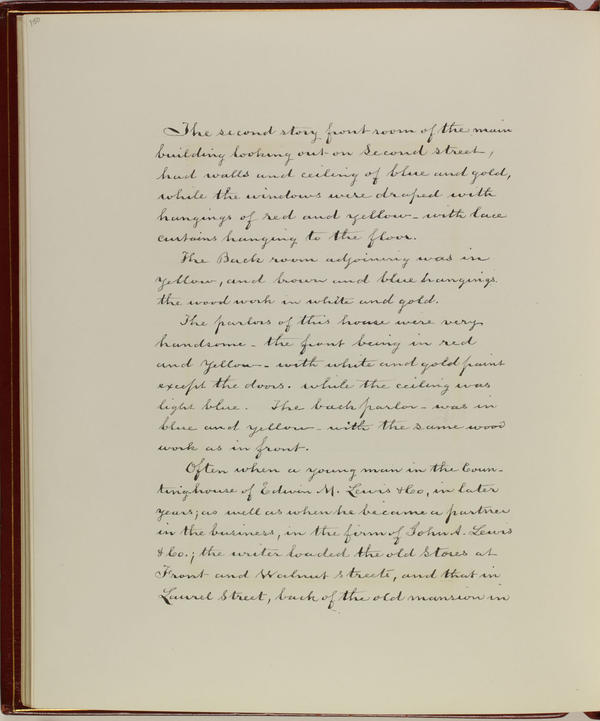 150
The second story front room of the main
building looking out on Second street,
had walls and ceiling of blue and gold,
while the windows were draped with
hangings of red and yellow - with lace
curtains hanging to the floor.
The Back room adjoining was in
yellow, and brown and blue hangings
the wood work in white and gold.
The parlors of this house were very
handsome - the front being in red
and yellow - with white and gold paint
except the doors. while the ceiling was
light blue. The back parlor - was in
blue and yellow - with the same wood
work as in front.
Often when a young man in the Coun-
tinghouse of Edwin M. Lewis & Co, in later
years; as well as when he became a partner
in the business, in the firm of John A. Lewis
& Co.; the writer loaded the old Stores at
Front and Walnut streets, and that in
Laurel Street, back of the old mansion in